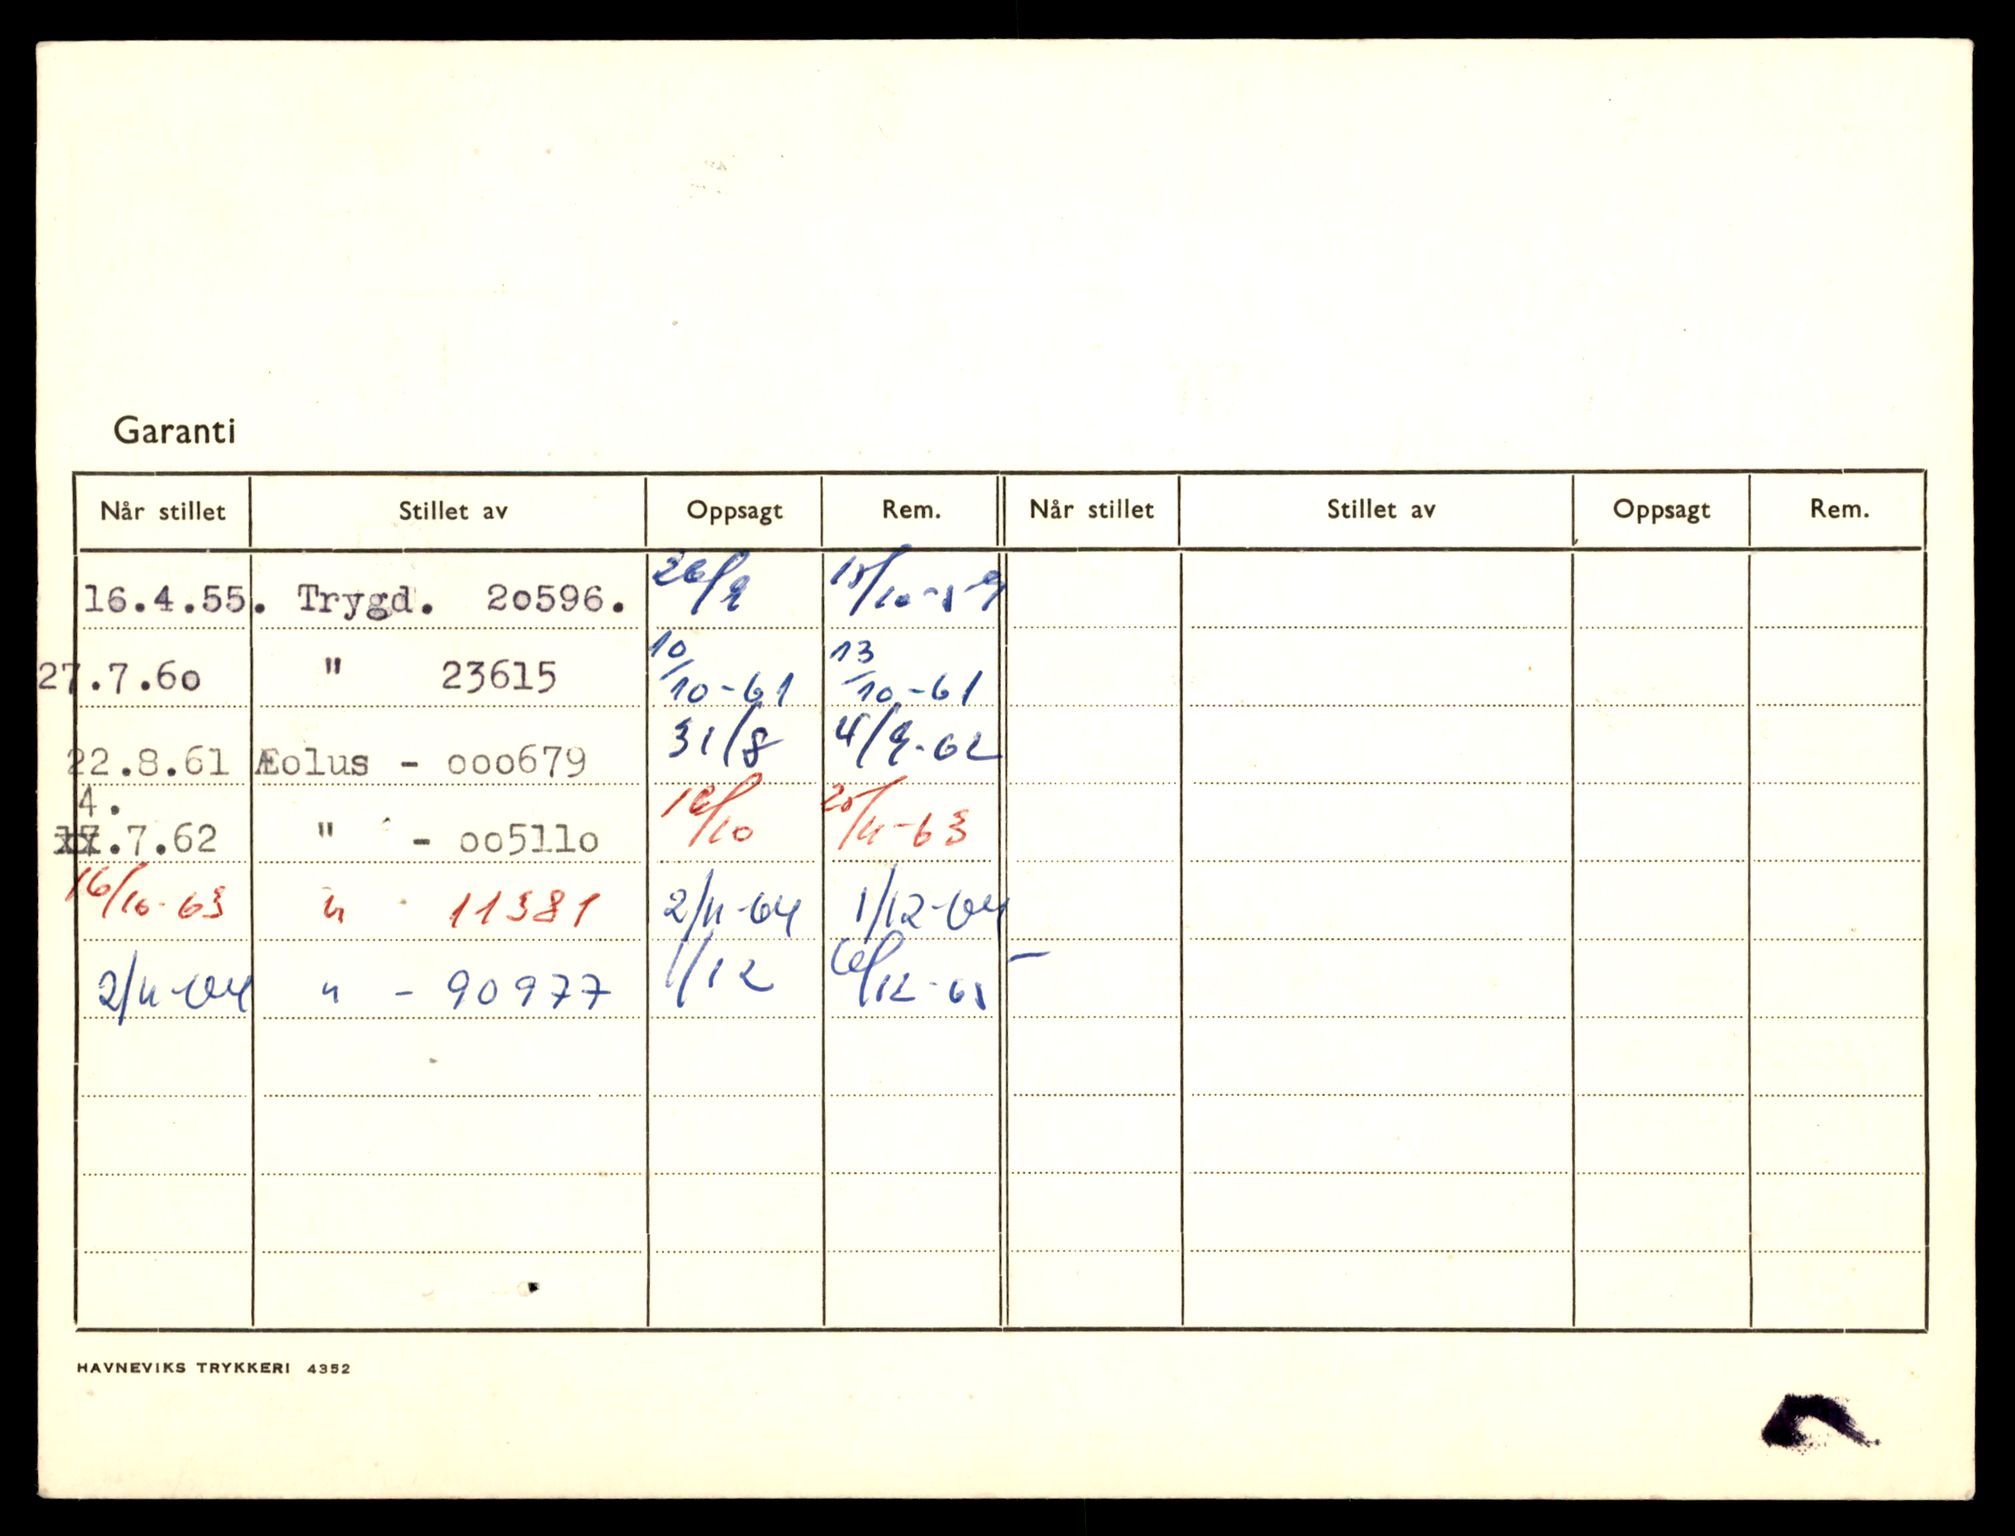 Garanti
Når stillet Stillet av Oppsagt Rem. Når stillet Stillet av Oppsagt Rem.
16.4.55. Trygd. 20596. 26/9 15/10-59
27.7.60 " 23615 10/10-61 13/10-61
22.8.61 Æolus - 000679 31/8 4/9-62
4.
17.7.62 " - 005110 16/10 20/11-63
16/10-63 " - 11381 2/11-64 1/12-64
2/11-64 " - 90977 1/12 6/12-65 -
HAVNEVIKS TRYKKERI 4352